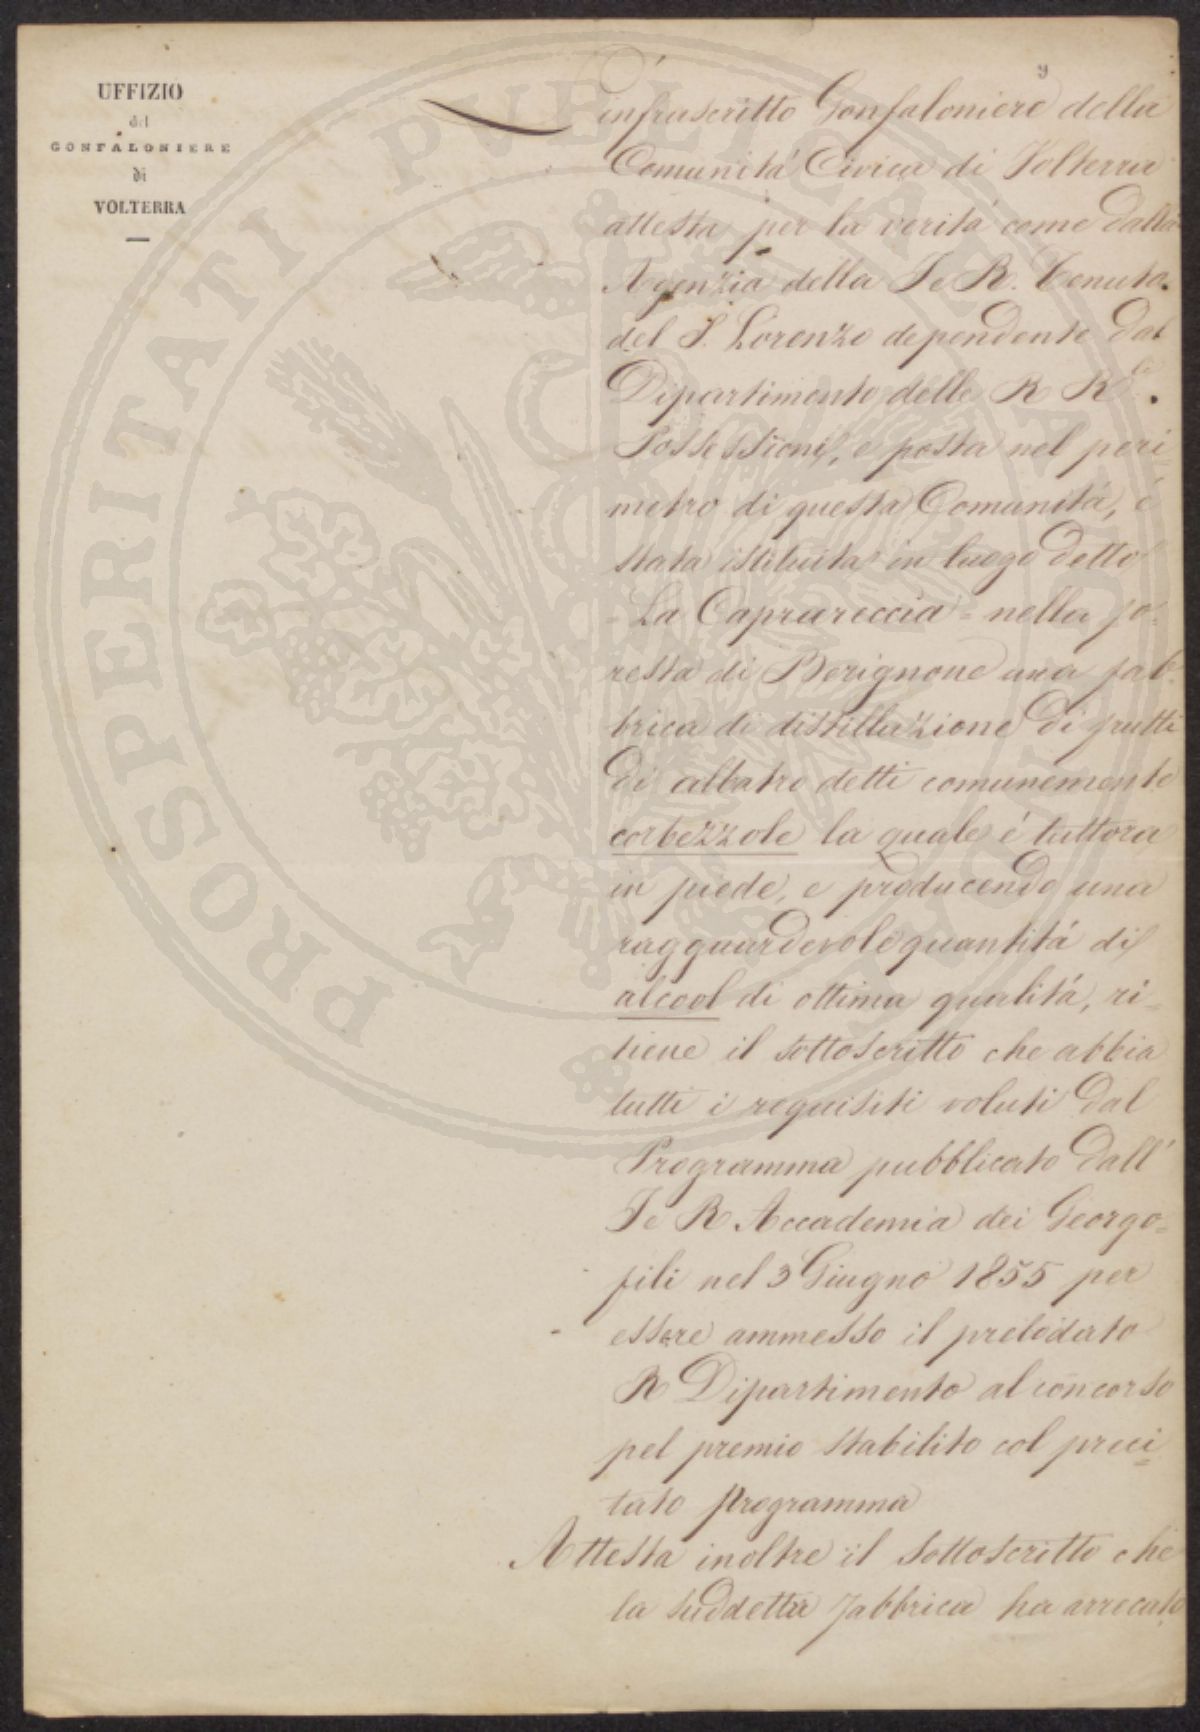 UFFIZIO
del
GONFALONIERE
di
VOLTERRA
9
L'infrascritto Gonfaloniere della
Comunitá Civica di Volterra
attesta per la veritá come dalla
Agenzia della I e R. Tenuta
del S. Lorenzo dependente dal
Dipartimento delle R R.
Possessioni, e posta nel peri=
metro di questa Comunitá, é
stata istituita in luogo detto
= La Caprareccia = nella fo=
resta di Berignone una fab=
brica di distillazione di frutti
di albatro detti comunemente
corbezzole la quale é tuttora
in piede, e producendo una
ragguardevole quantitá di
alcool di ottima qualitá, ri=
tiene il sottoscritto che abbia
tutti i requisiti voluti dal
Programma pubblicato dall'
I e R Accademia dei Georgo=
fili nel 3 Giugno 1855 per
essere ammesso il prelodato
R Dipartimento al concorso
pel premio stabilito col preci=
tato programma
Attesta inoltre il sottoscritto che
la suddetta fabbrica ha arrecato
PROSPERITATI PVBLICAE AVGENDAE